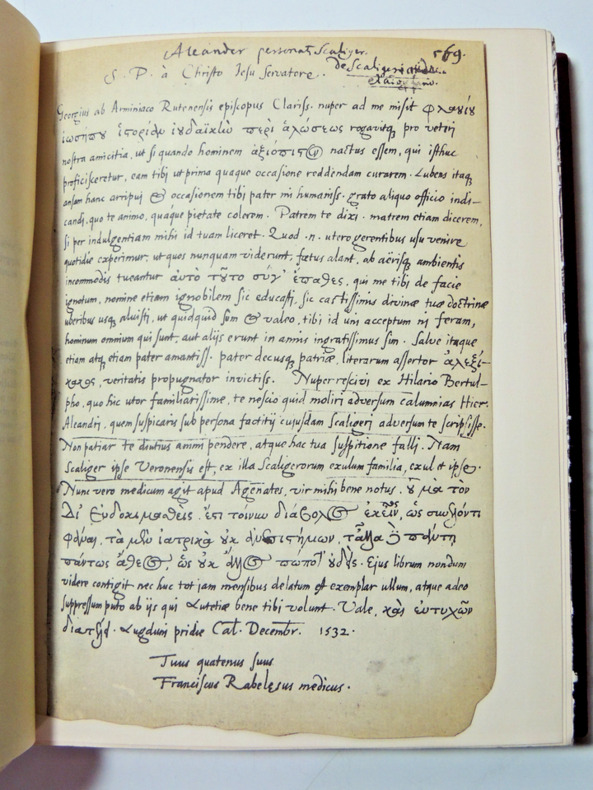 Aleander personat. Scaliger.
569.
de Scaligeri
S. P. à Christo Iesu Servatore.
Georgius ab Arminiaco Rutenensis episcopus Clariss. nuper ad me misit φλαουίου
ἰωσήπου ἱστορίαν ἰουδαϊκὴν περὶ ἁλώσεως rogavitq, pro veteri
nostra amicitia, ut si quando hominem ἀξιόπιστον nactus essem, qui isthuc
proficisceretur, eam tibi ut prima quaque occasione reddendam curarem. Lubens itaq
ansam hanc arripui & occasionem tibi pater mi humaniss. grato aliquo officio indi-
candi, quo te animo, quaque pietate colerem. Patrem te dixi. matrem etiam dicerem,
si per indulgentiam mihi id tuam liceret. Quod .n. utero gerentibus usu venire
quotidie experimur, ut quos nunquam viderunt, fœtus alant, ab aërisq ambientis
incommodis tueantur αὐτὸ τοῦτο σύγ' ἔπαθες, qui me tibi de facie
ignotum, nomine etiam ignobilem sic educasti, sic castissimis divinæ tuæ doctrinæ
uberibus usq aluisti, ut quidquid sum & valeo, tibi id uni acceptum ni feram,
hominum omnium qui sunt, aut alijs erunt in annis ingratissimus sim. Salve itaque
etiam atq etiam pater amantiss. pater decusq patriæ, literarum assertor ἀλεξί-
κακος, veritatis propugnator invictiss. Nuper rescivi ex Hilario Bertul-
pho, quo hic utor familiarissime, te nescio quid moliri adversum calumnias Hier.
Aleandri, quem suspicaris sub persona factitij cujusdam Scaligeri adversum te scripsisse.
Non patiar te diutius animi pendere, atque hac tua suspitione falli. Nam
Scaliger ipse Veronensis est, ex illa Scaligerorum exulum familia, exul et ipse.
Nunc vero medicum agit apud Agenates, vir mihi bene notus. οὐ μὰ τὸν
Δί' εὐδοκιμασθείς. ἔστι τοίνυν διάβολος ἐκεῖνος, ὡς συνελόντι
φάναι, τὰ μὲν ἰατρικὰ οὐκ ἀνεπιστήμων, τἄλλα δὲ πάντῃ
πάντως ἄθεος, ὡς οὐκ ἄλλος πώποτ' οὐδείς. Ejus librum nondum
videre contigit nec huc tot jam mensibus delatum est exemplar ullum, atque adeo
suppressum puto ab ijs qui Lutetiæ bene tibi volunt. Vale, καὶ εὐτυχῶν
διατέλει. Lugduni pridie Cal. Decembr. 1532.
Tuus quatenus suus
Franciscus Rabelæsus medicus.